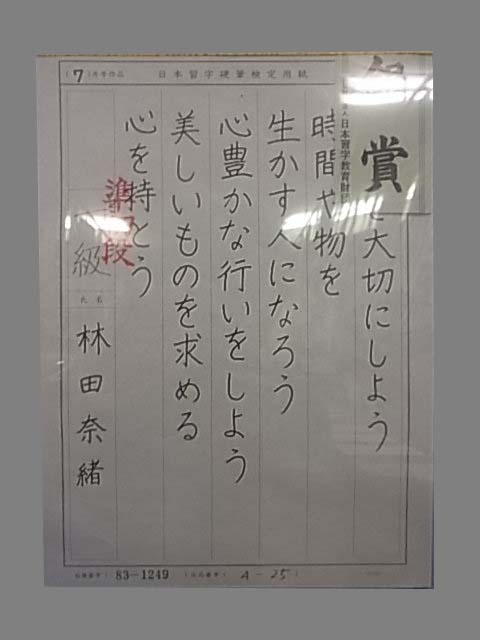 (7)月号作品 日本習字硬筆検定用紙
賞
人日本習字教育財団
を大切にしよう
時間や物を
生かす人になろう
心豊かな行いをしよう
美しいものを求める
心を持とう
級
準初段
氏名
林田奈緒
83-1249
A-25